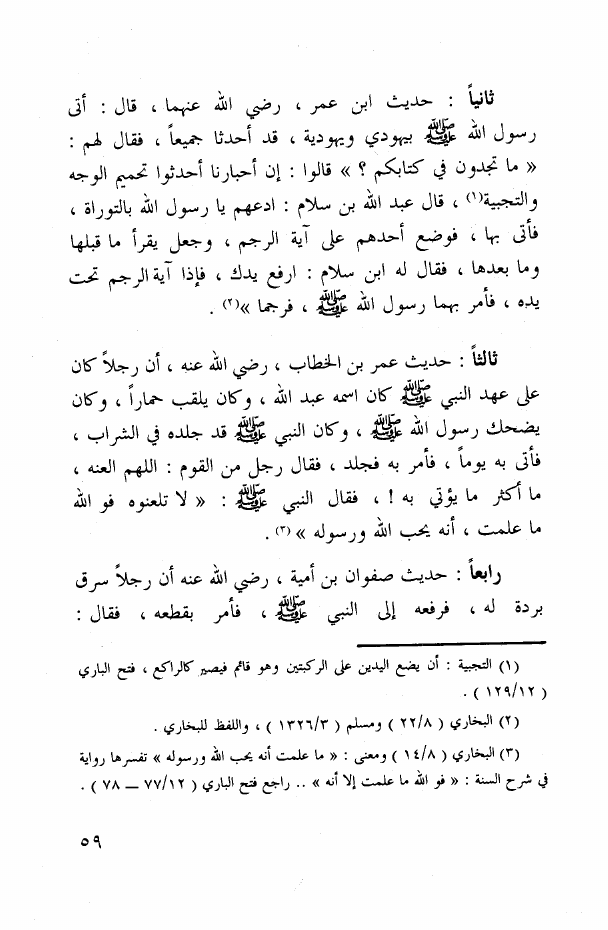 ثانياً : حديث ابن عمر ، رضي الله عنهما ، قال : أتى
رسول الله ﷺ بيهودي ويهودية ، قد أحدثا جميعاً ، فقال لهم :
« ما تجدون في كتابكم ؟ » قالوا : إن أحبارنا أحدثوا تحميم الوجه
والتجبية(١) ، قال عبد الله بن سلام : ادعهم يا رسول الله بالتوراة ،
فأتى بها ، فوضع أحدهم على آية الرجم ، وجعل يقرأ ما قبلها
وما بعدها ، فقال له ابن سلام : ارفع يدك ، فإذا آية الرجم تحت
يده ، فأمر بهما رسول الله ﷺ ، فرجما »(٢) .
ثالثاً : حديث عمر بن الخطاب ، رضي الله عنه ، أن رجلاً كان
على عهد النبي ﷺ كان اسمه عبد الله ، وكان يلقب حماراً ، وكان
يضحك رسول الله ﷺ ، وكان النبي ﷺ قد جلده في الشراب ،
فأتى به يوماً ، فأمر به فجلد ، فقال رجل من القوم : اللهم العنه ،
ما أكثر ما يؤتي به ! ، فقال النبي ﷺ : « لا تلعنوه فو الله
ما علمت ، أنه يحب الله ورسوله »(٣) .
رابعاً : حديث صفوان بن أمية ، رضي الله عنه أن رجلاً سرق
بردة له ، فرفعه إلى النبي ﷺ ، فأمر بقطعه ، فقال :
(١) التجبية : أن يضع اليدين على الركبتين وهو قائم فيصير كالراكع ، فتح الباري
( ١٢٩/١٢ ) .
(٢) البخاري ( ٢٢/٨ ) ومسلم ( ١٣٢٦/٣ ) ، واللفظ للبخاري .
(٣) البخاري ( ١٤/٨ ) ومعنى : « ما علمت أنه يحب الله ورسوله » تفسرها رواية
في شرح السنة : « فو الله ما علمت إلا أنه » .. راجع فتح الباري ( ٧٧/١٢ — ٧٨ ) .
٥٩